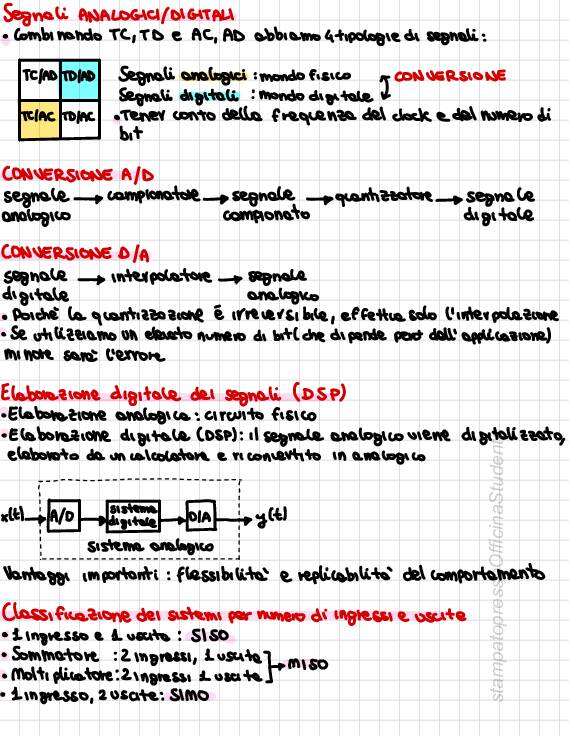 Segnali ANALOGICI/DIGITALI
• Combinando TC, TD e AC, AD abbiamo 4 tipologie di segnali:
TC/AD TD/AD
TC/AC TD/AC
Segnali analogici : mondo fisico
Segnali digitali : mondo digitale
CONVERSIONE
• Tener conto della frequenza del clock e del numero di
bit
CONVERSIONE A/D
segnale analogico → campionatore → segnale campionato → quantizzatore → segnale digitale
CONVERSIONE D/A
segnale digitale → interpolatore → segnale analogico
• Poiché la quantizzazione è irreversibile, effettua solo l'interpolazione
• Se utilizziamo un elevato numero di bit (che dipende però dall'applicazione)
minore sarà l'errore
Elaborazione digitale dei segnali (DSP)
• Elaborazione analogica : circuito fisico
• Elaborazione digitale (DSP): il segnale analogico viene digitalizzato,
elaborato da un calcolatore e riconvertito in analogico
x(t) → A/D → sistema digitale → D/A → y(t)
sistema analogico
Vantaggi importanti : flessibilità e replicabilità del comportamento
Classificazione dei sistemi per numero di ingressi e uscite
• 1 ingresso e 1 uscita : SISO
• Sommatore : 2 ingressi, 1 uscita
• Moltiplicatore: 2 ingressi 1 uscita
→ MISO
• 1 ingresso, 2 uscite: SIMO
stampatopressoOfficinaStudenti